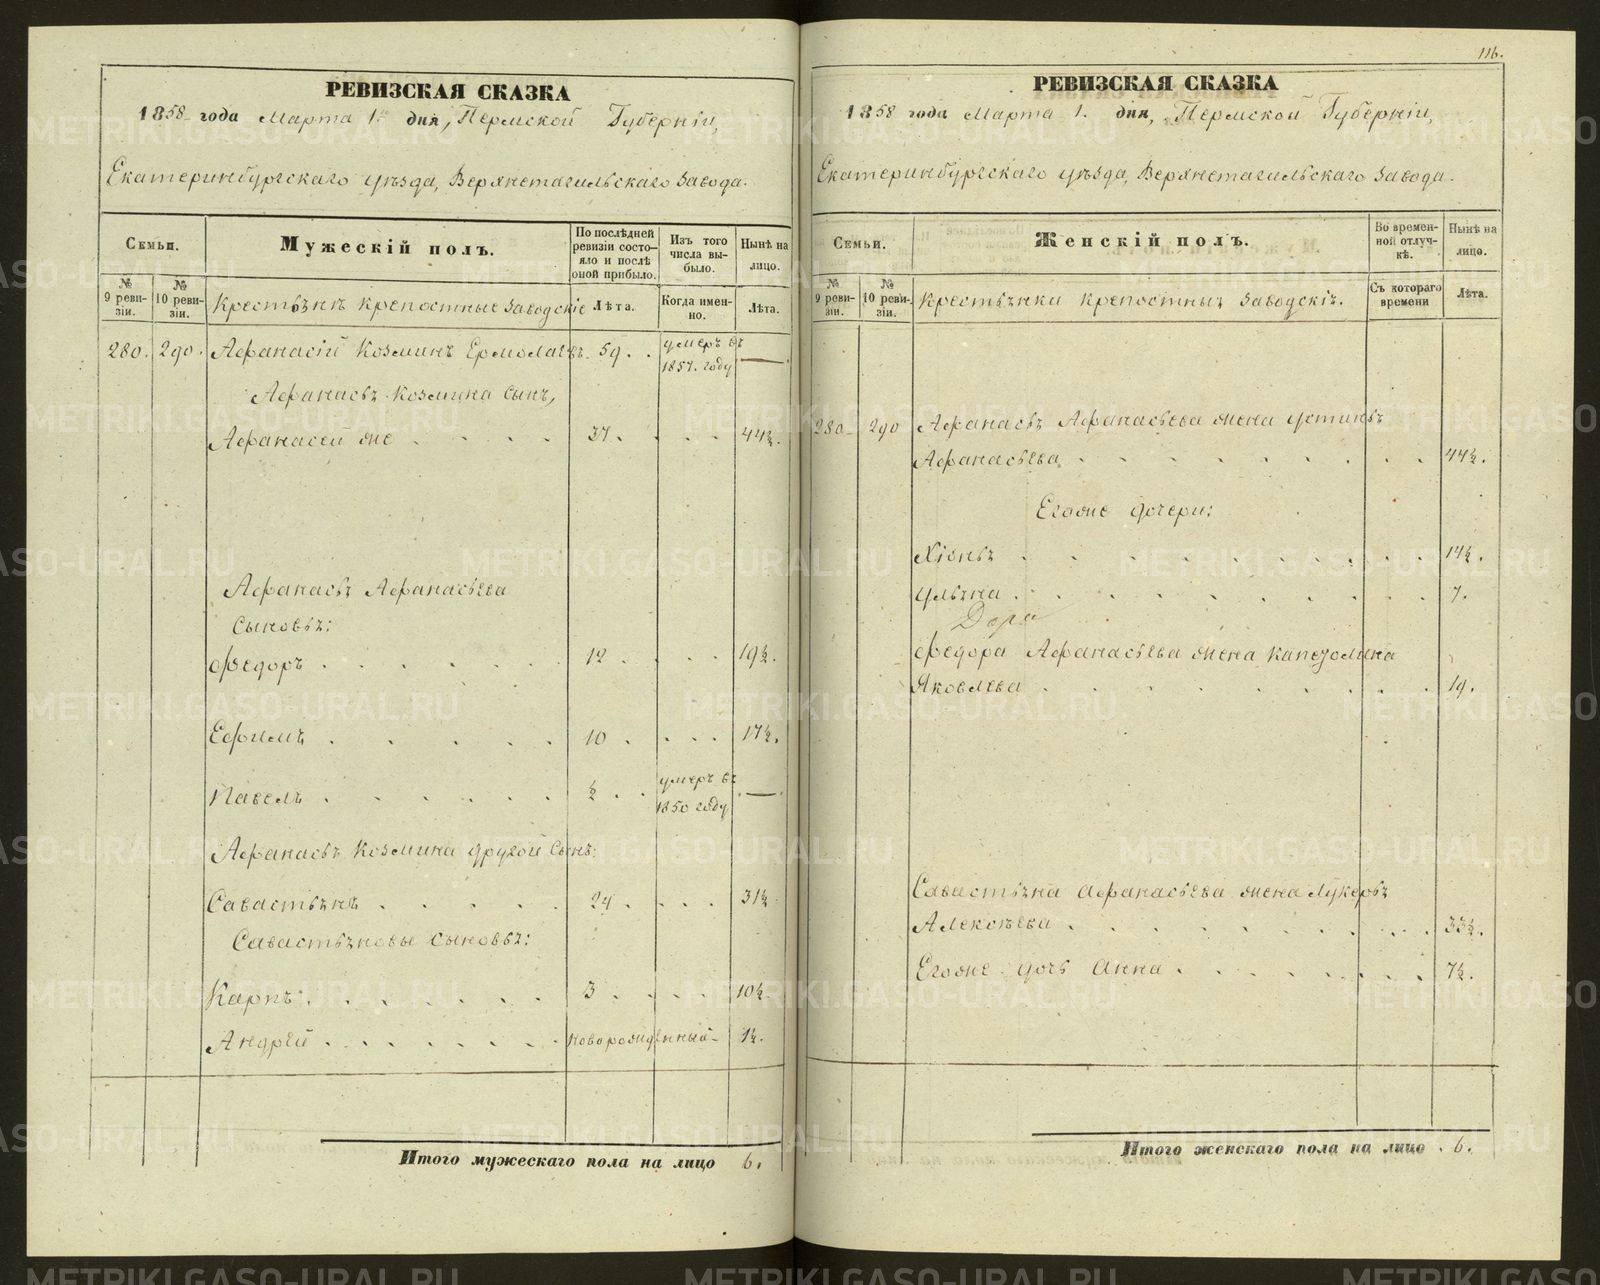 РЕВИЗСКАЯ СКАЗКА
1858 года Марта 1го дня, Пермской Губерніи,
Екатеринбургскаго уѣзда, Верхнетагильскаго Завода.
Семьи.
Мужескій полъ.
По послѣдней ревизіи состо-
яло и послѣ оной прибыло.
Изъ того числа вы-
было.
Нынѣ на лицо.
№ 9 реви-
зіи.
№ 10 реви-
зіи.
Крестьяне крепостные Заводскіе
Лѣта.
Когда имен-
но.
Лѣта.
280. 290. Афанасій Козминъ Ермолаевъ. 59. умеръ въ 1857. году —
Афанасья Козмина сынъ,
Афанасей же 37. 44½.
Афанасья Афанасьева
сыновья:
Федоръ 12. 19½.
Ефимъ 10. 17½.
Павелъ ½. умеръ въ 1850 году —
Афанасья Козмина другой сынъ:
Савастьянъ 24. 31½
Савастьяновы сыновья:
Карпъ 3. 10½.
Андрей новорожденный 1½.
Итого мужескаго пола на лицо 6.
116.
РЕВИЗСКАЯ СКАЗКА
1858 года Марта 1. дня, Пермской Губерніи,
Екатеринбургскаго уѣзда, Верхнетагильскаго Завода.
Семьи.
Женскій полъ.
Во времен-
ной отлуч-
кѣ.
Нынѣ на лицо.
№ 9 реви-
зіи.
№ 10 реви-
зіи.
Крестьянки крепостныя Заводскія.
Съ котораго времени
Лѣта.
280. 290 Афанасья Афанасьева жена Устинья
Афанасьева 44½.
Егоже дочери:
Хіонья 14½.
Ульяна 7.
Дора
Федора Афанасьева жена Капезолина
Яковлева 19.
Савастьяна Афанасьева жена Лукерья
Алексѣева 33½.
Егоже дочь Анна 7½.
Итого женскаго пола на лицо 6.
METRIKI.GASO-URAL.RU